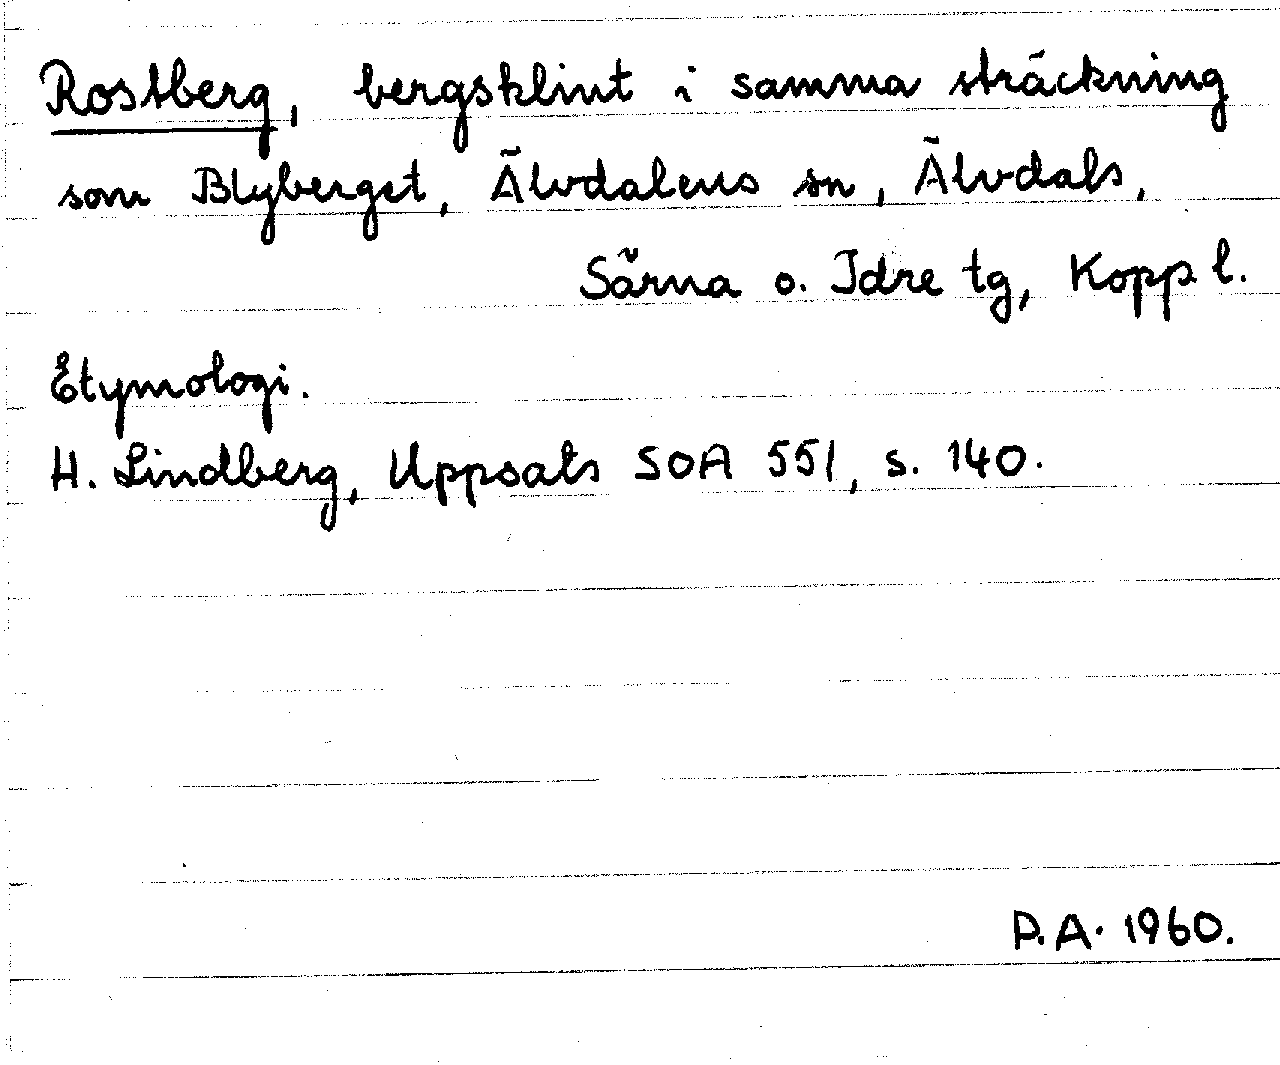 Rostberg, bergsklint i samma sträckning
som Blyberget, Älvdalens sn, Älvdals,
Särna o. Idre tg, Kopp l.
Etymologi.
H. Lindberg, Uppsats SOA 551, s. 140.
P.A. 1960.